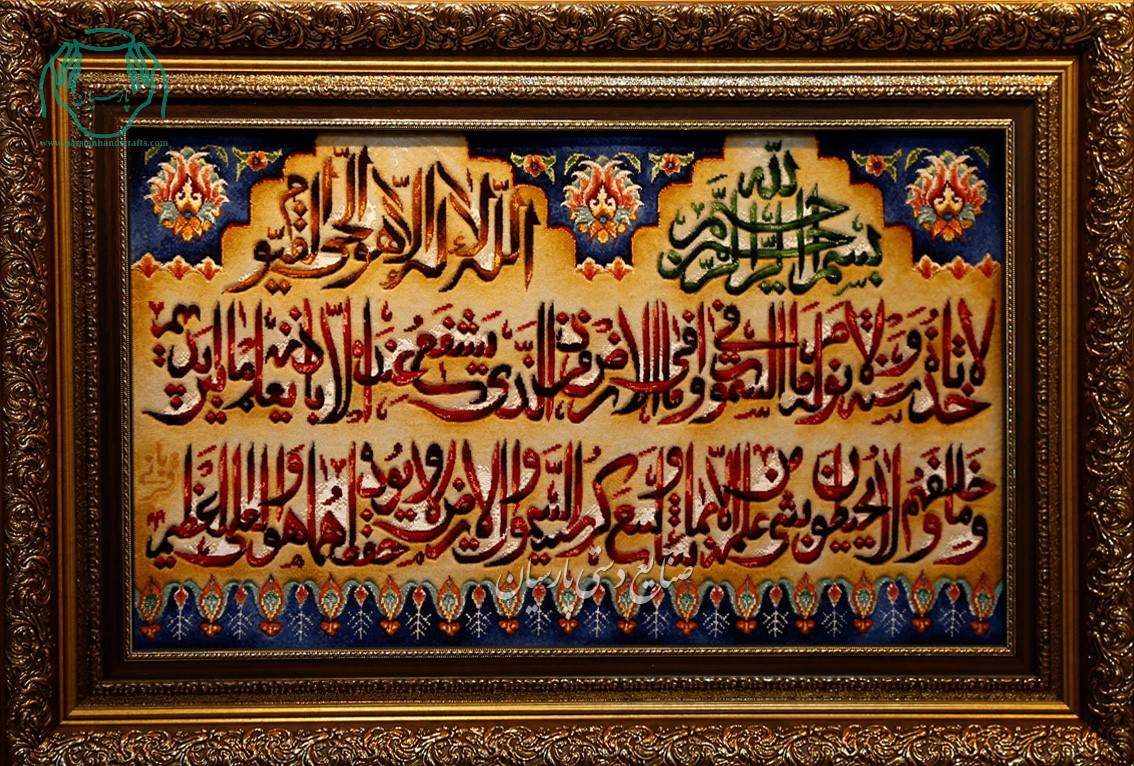 بسم الله الرحمن الرحیم
الله لا إله إلا هو الحی القیوم
لا تأخذه سنة ولا نوم له ما فی السموات وما فی الارض من ذا الذی یشفع عنده الا باذنه یعلم ما بین ایدیهم
وما خلفهم ولا یحیطون بشیء من علمه الا بما شاء وسع کرسیه السموات والارض ولا یوده حفظهما وهو العلی العظیم
صنایع دستی پارسیان
پارسیان
www.parsianhandicrafts.com